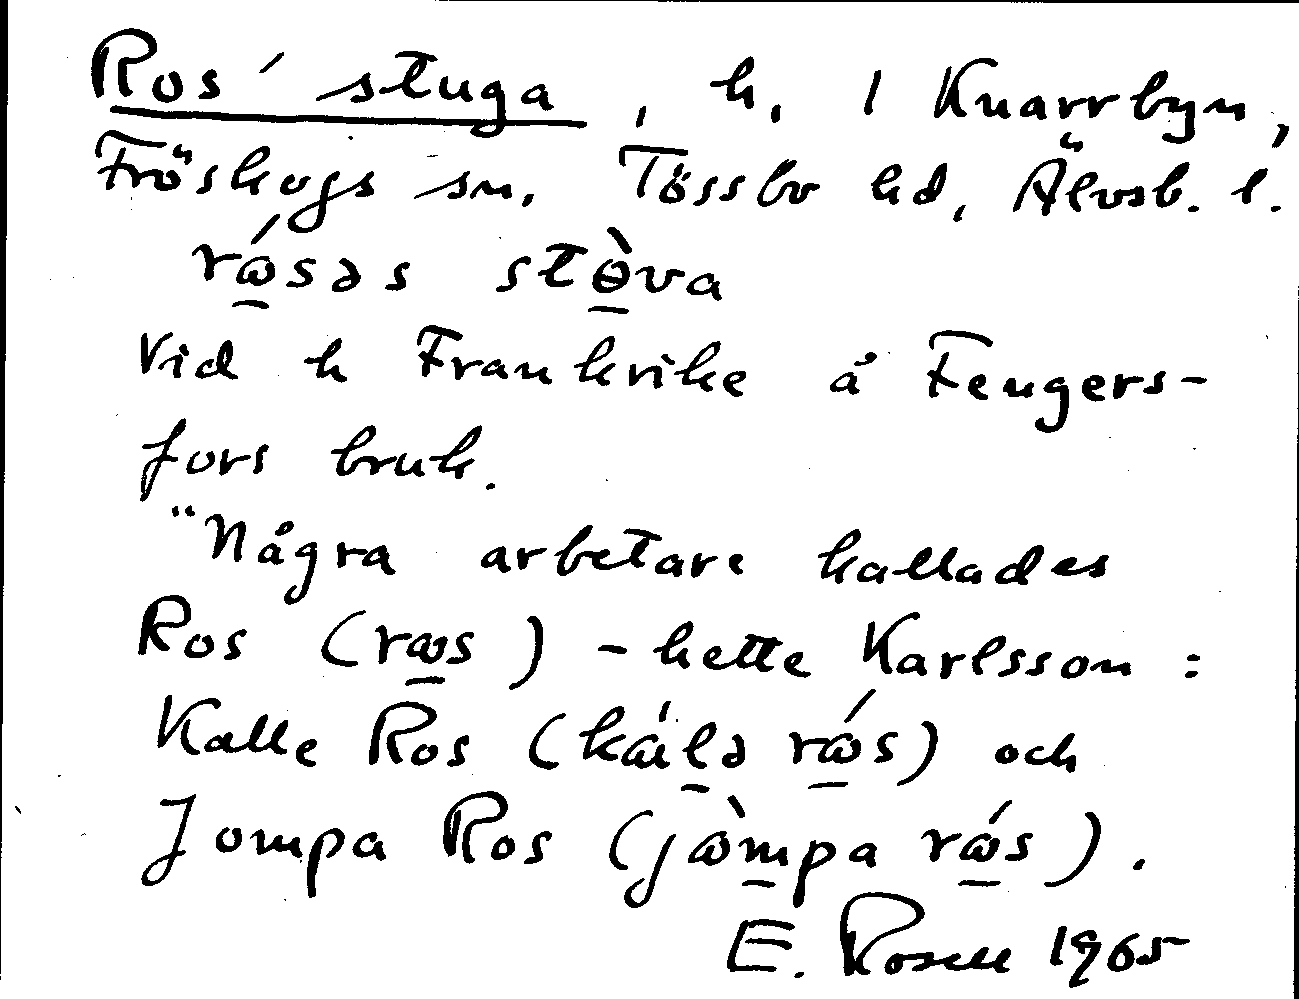 Ros' stuga, h. i Knarrbyn,
Fröskogs sn, Tössbo hd, Älvsb. l.
rɷ́səs stɵ̀va
Vid h Frankrike å Fengers-
fors bruk.
"Några arbetare kallades
Ros (rɷs) - hette Karlsson:
Kalle Ros (káḷə rɷ́s) och
Jompa Ros (jɷ̀mpa rɷ́s).
E. Rosell 1965